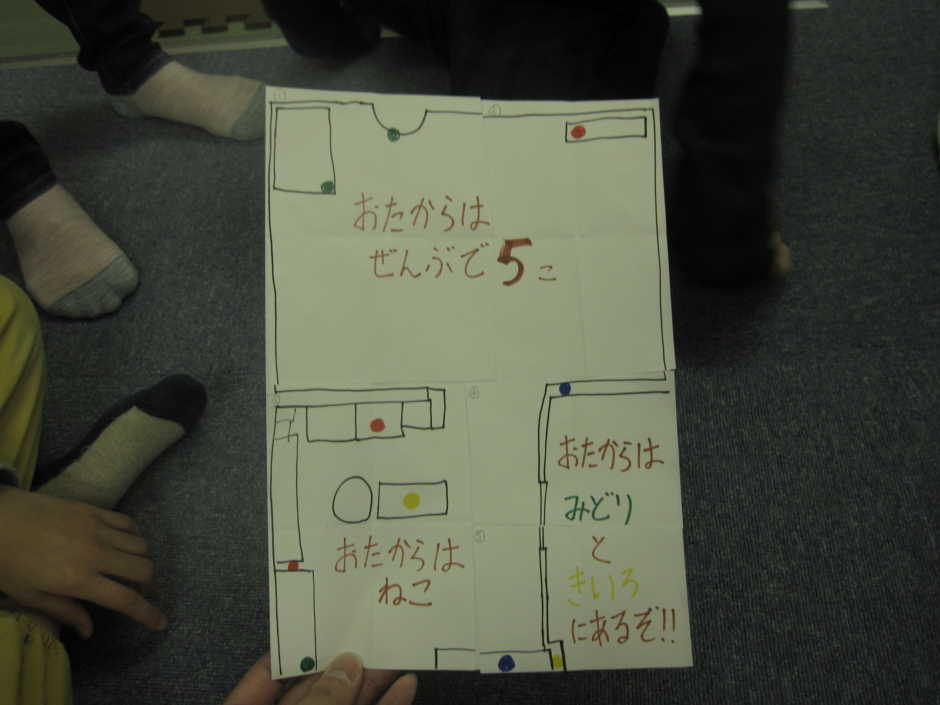 おたからは
ぜんぶで5こ
おたからは
ねこ
おたからは
みどり
と
きいろ
にあるぞ!!